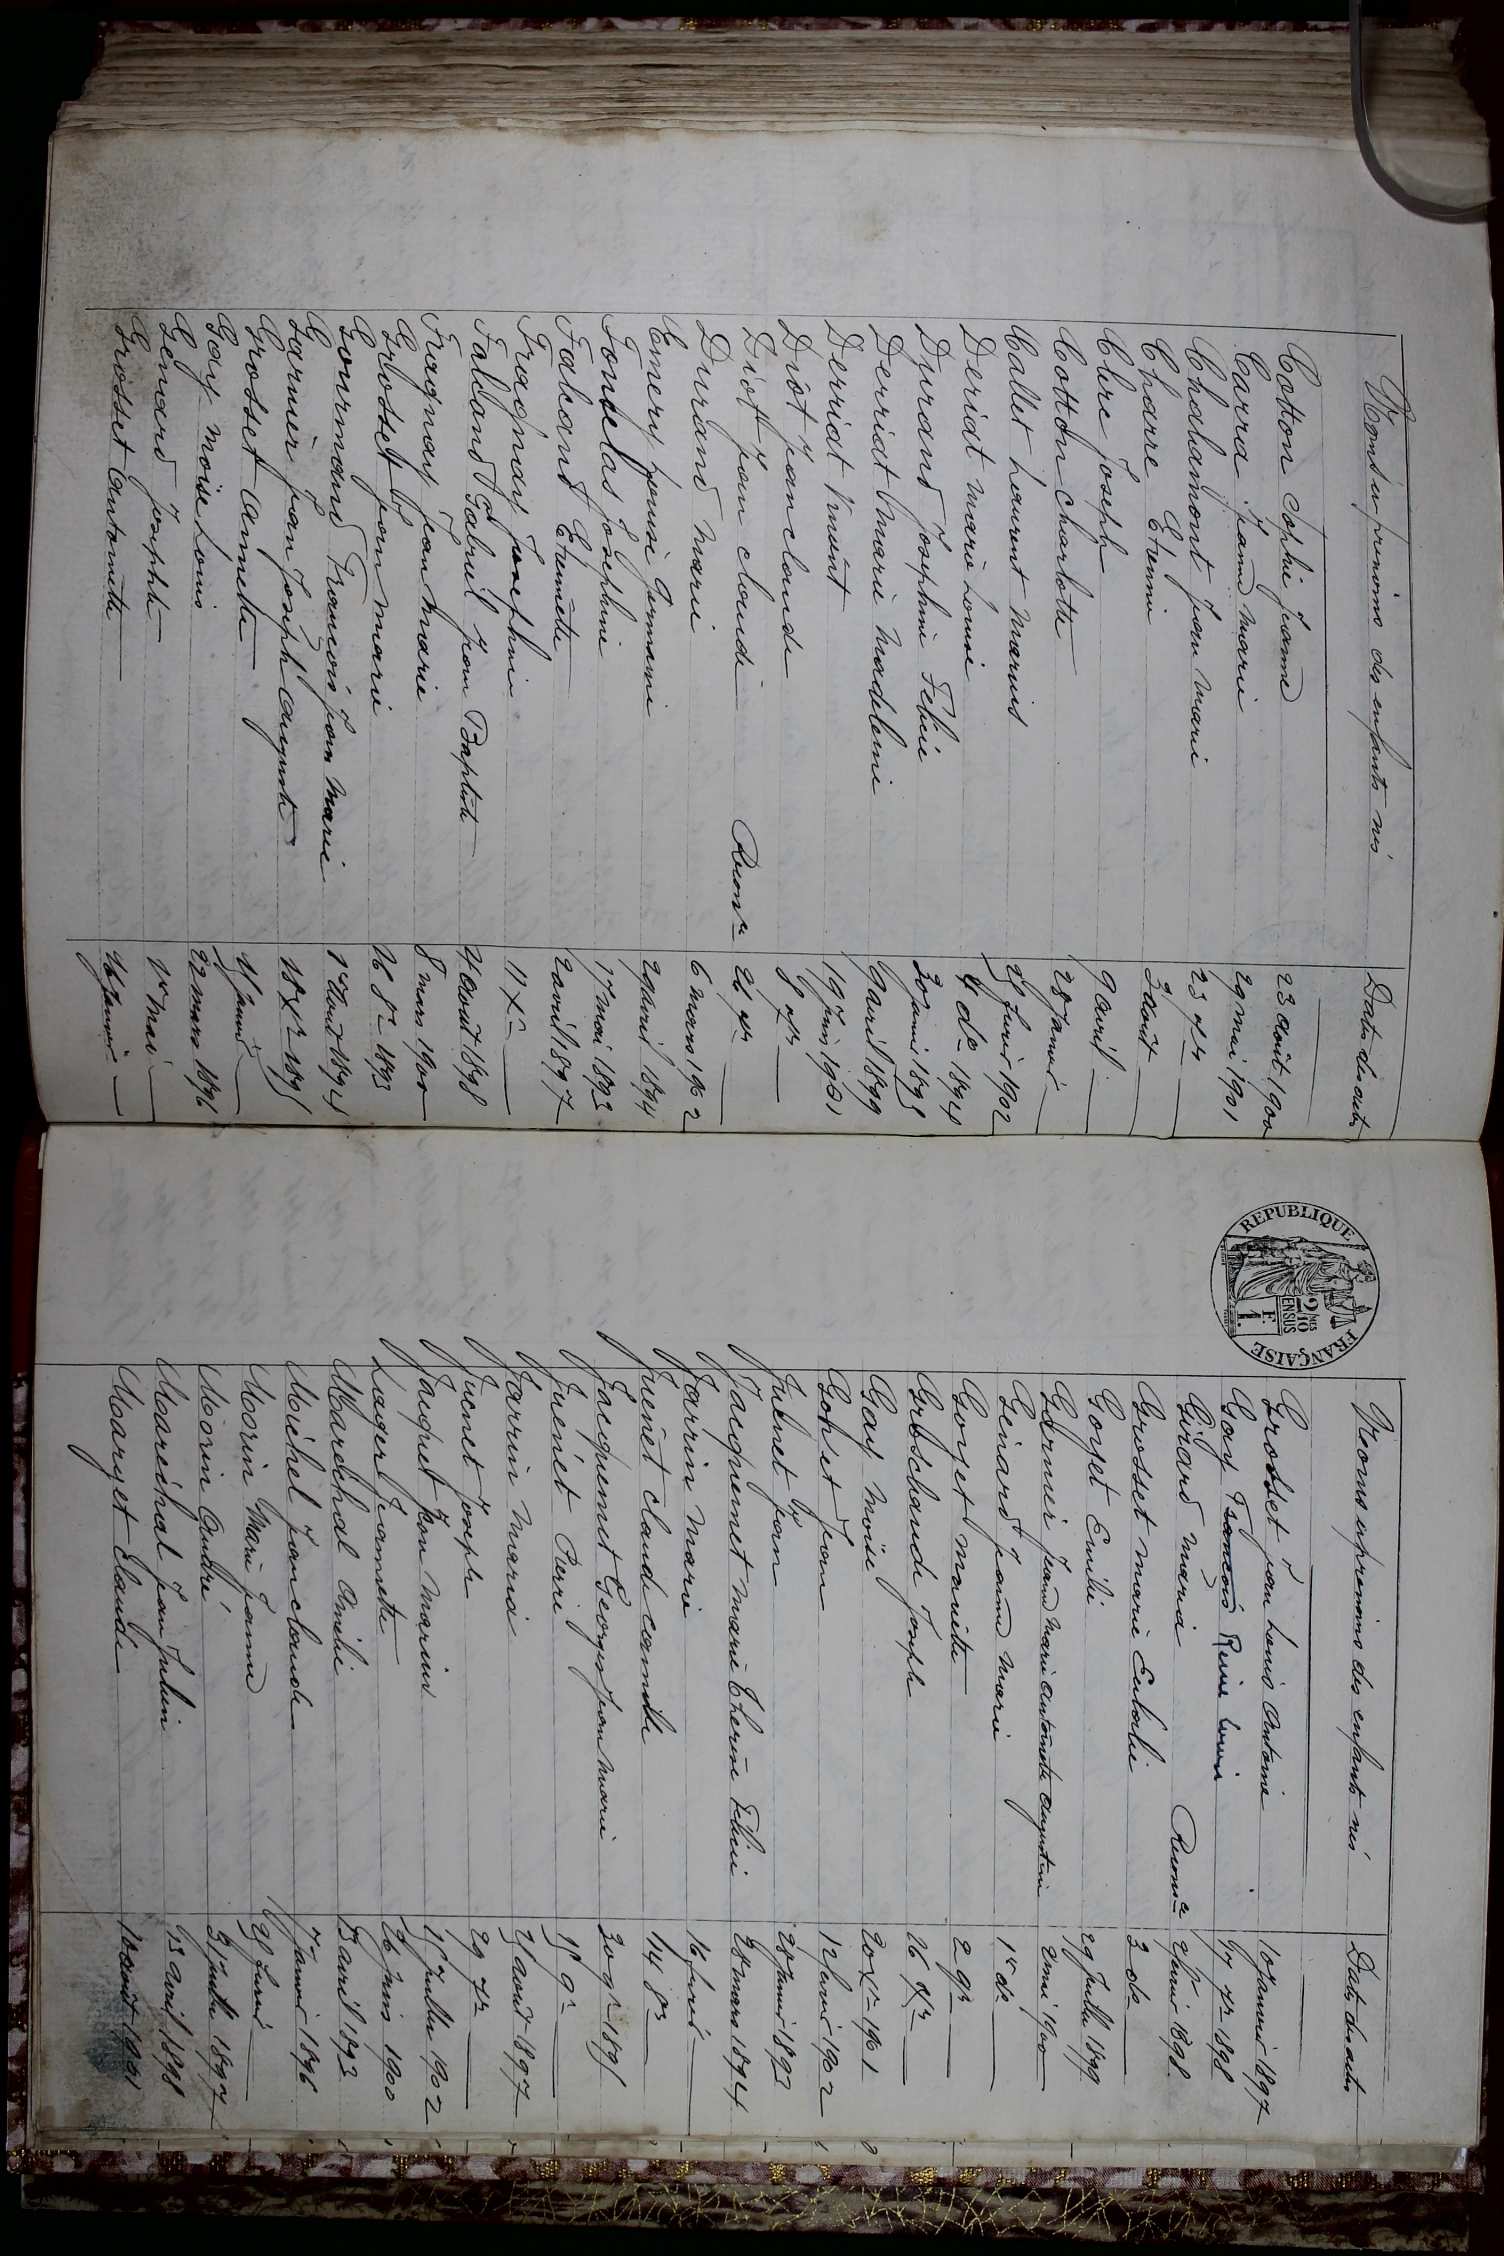 Noms et prénoms des enfants nés Date des actes
Cotton Sophie Jeanne 23 août 1900
Carra Jeanne Marie 29 mai 1901
Chahamont Jean Marie 23 7bre
Charre Etienne 3 août
Clere Joseph 9 avril
Cotton Charlotte 28 Janvier
Callet Laurent Marius 27 février 1902
Deriat Marie Louise 4 do 1894
Durand Joséphine Félicie 30 janvier 1895
Derriat Marie Madeleine 9 avril 1899
Derriat Vincent 19 juin 1901
Diôt Jean Claude 8 7bre
Diot Jean Claude Reconce
Durand Marie 6 mars 1902
Emery Louise Germaine 29 avril 1894
Fontelas Joséphine 17 mai 1893
Falcand Etiennette 2 avril 1897
Fragnay Joséphine 11 Xre
Falcand Gabriel Jean Baptiste 4 août 1898
Fragnay Jean Marie 8 mars 1900
Grosset Jean Marie 16 8re 1893
Gourmand François Jean Marie 1er août 1894
Garnier Jean Joseph Auguste 18 Xre 1895
Grosset Annette
Gay Moïse Louis 22 mars 1896
Genard Joseph 1er Mai
Grosset Antoinette 16 Janvier
REPUBLIQUE FRANÇAISE
2/10mes
EN SUS
1 F.
Noms et prénoms des enfants nés Date des actes
Grosset Jean Louis Antoine 10 Janvier 1897
Gay François Reine Louise 7re 1898
Girard Maria Reconce 1898
Grosset Marie Eulalie 3 do
Gorget Emilie 29 Juillet 1899
Garnier Jeanne Marie Antoinette Augustine 2 mai 1900
Genard Jeanne Marie 1er do
Gorget Mariette 2 9re
Grosset Joseph 26 Xbre
Gay Moïse 20 Xre 1901
Gonet Jean 12 février 1902
Juenet Jean 28 Janvier 1893
Jacquemet Marie Thérèse Félicie 28 mars 1894
Jarrin Marie 16 février
Juenet Claude Camille 14 8re
Jacquemet Georges Jean Marie 30 9re 1895
Juenet Pierre 15 9re
Jarrin Maria août 1897
Juenet Joseph 29 7re
Jacquet Jean Marius 15 Juillet 1902
Lager Jeannette 26 juin 1900
Marechal Amélie 13 avril 1893
Michel Jean Claude 7 Janvier 1896
Morin Marie Jeanne février
Morin André Juillet 1897
Marechal Jean Julien 13 avril 1898
Marget Claude 1901